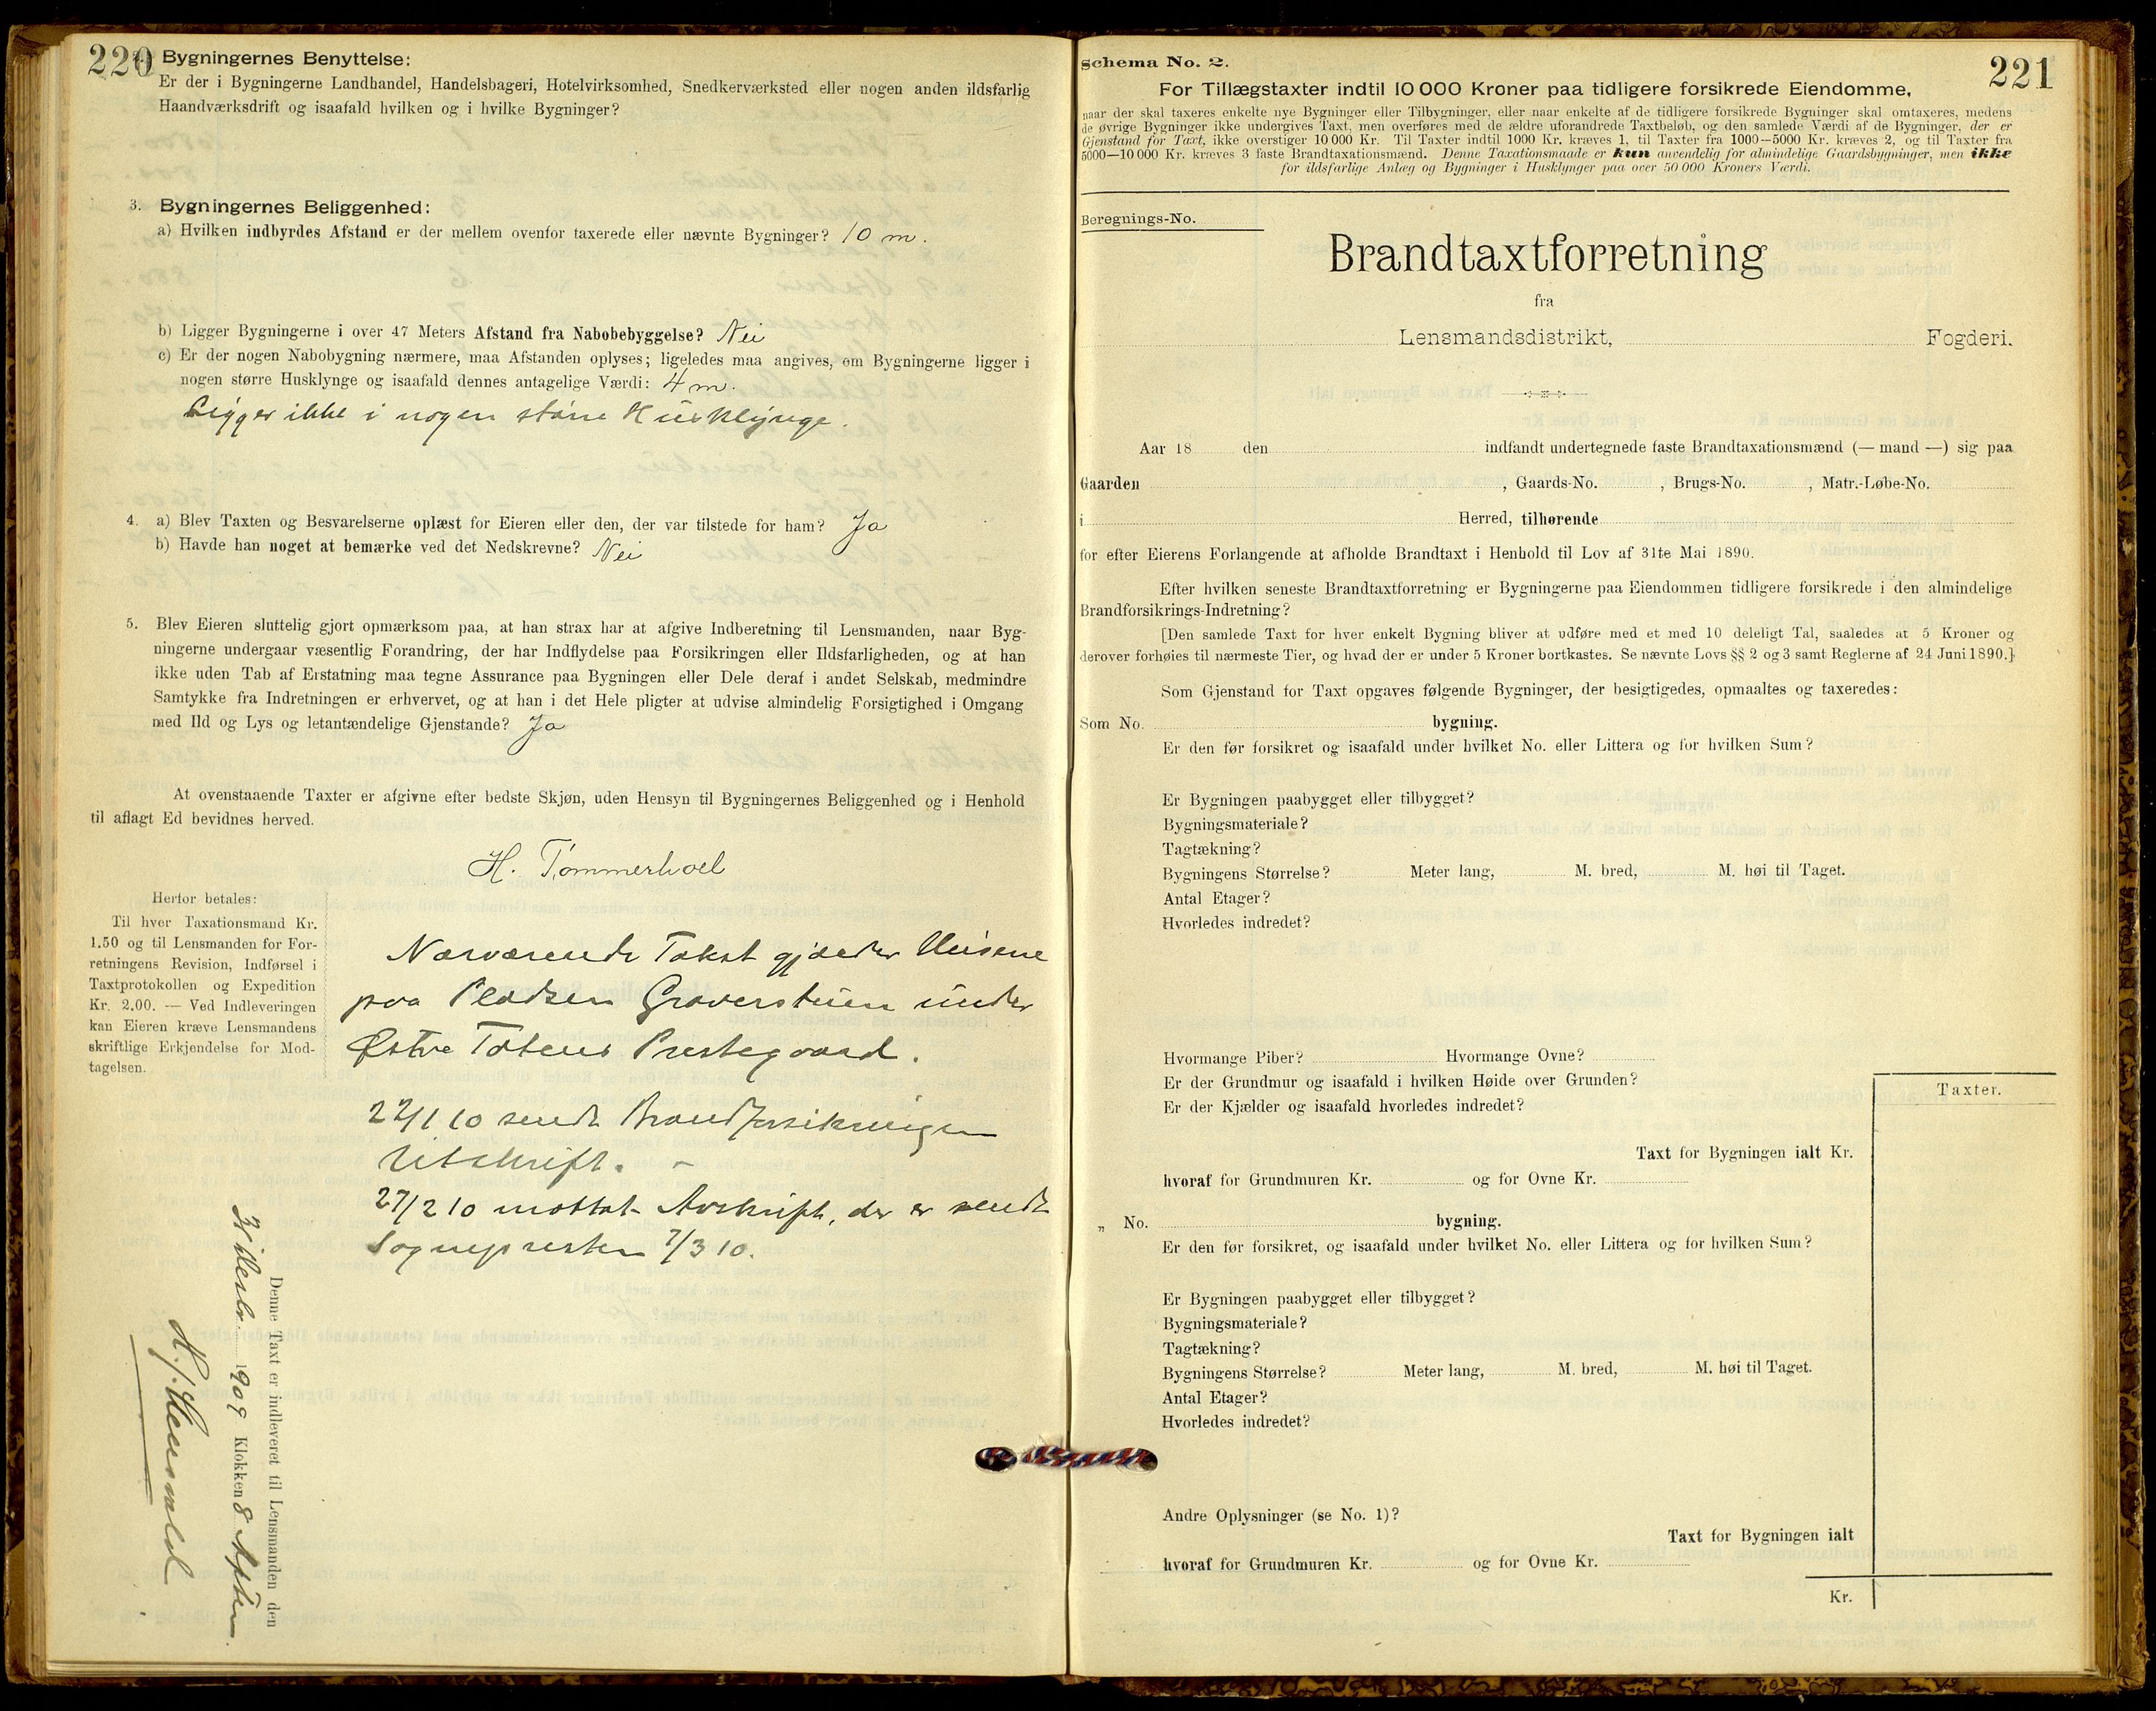 220
Bygningernes Benyttelse:
Er der i Bygningerne Landhandel, Handelsbageri, Hotelvirksomhed, Snedkerværksted eller nogen anden ildsfarlig
Haandværksdrift og isaafald hvilken og i hvilke Bygninger?
3. Bygningernes Beliggenhed:
a) Hvilken indbyrdes Afstand er der mellem ovenfor taxerede eller nævnte Bygninger? 10 m.
b) Ligger Bygningerne i over 47 Meters Afstand fra Nabobebyggelse? Nei
c) Er der nogen Nabobygning nærmere, maa Afstanden oplyses; ligeledes maa angives, om Bygningerne ligger i
nogen større Husklynge og isaafald dennes antagelige Værdi: 4 m.
Ligger ikke i nogen større Husklynge.
4. a) Blev Taxten og Besvarelserne oplæst for Eieren eller den, der var tilstede for ham? Ja
b) Havde han noget at bemærke ved det Nedskrevne? Nei
5. Blev Eieren sluttelig gjort opmærksom paa, at han strax har at afgive Indberetning til Lensmanden, naar Byg-
ningerne undergaar væsentlig Forandring, der har Indflydelse paa Forsikringen eller Ildsfarligheden, og at han
ikke uden Tab af Erstatning maa tegne Assurance paa Bygningen eller Dele deraf i andet Selskab, medmindre
Samtykke fra Indretningen er erhvervet, og at han i det Hele pligter at udvise almindelig Forsigtighed i Omgang
med Ild og Lys og letantændelige Gjenstande? Ja
At ovenstaaende Taxter er afgivne efter bedste Skjøn, uden Hensyn til Bygningernes Beliggenhed og i Henhold
til aflagt Ed bevidnes herved.
H. Tømmerhoel
Herfor betales:
Til hver Taxationsmand Kr.
1.50 og til Lensmanden for For-
retningens Revision, Indførsel i
Taxtprotokollen og Expedition
Kr. 2.00. — Ved Indleveringen
kan Eieren kræve Lensmandens
skriftlige Erkjendelse for Mod-
tagelsen.
Nærværende Takst gjælder Husene
paa Pladsen Graverstuen under
Østre Totens Prestegaard.
22/1 10 sendt Brandforsikringen
Utskrift. —
27/2 10 mottat Avskrift, der er sendt
Sognepresten 7/3 10.
Denne Taxt er indleveret til Lensmanden den
1909 Klokken 8 Aften.
Schema No. 2.
221
For Tillægstaxter indtil 10 000 Kroner paa tidligere forsikrede Eiendomme,
naar der skal taxeres enkelte nye Bygninger eller Tilbygninger, eller naar enkelte af de tidligere forsikrede Bygninger skal omtaxeres, medens
de øvrige Bygninger ikke undergives Taxt, men overføres med de ældre uforandrede Taxtbeløb, og den samlede Værdi af de Bygninger, der er
Gjenstand for Taxt, ikke overstiger 10 000 Kr. Til Taxter indtil 1000 Kr. kræves 1, til Taxter fra 1000—5000 Kr. kræves 2, og til Taxter fra
5000—10 000 Kr. kræves 3 faste Brandtaxationsmænd. Denne Taxationsmaade er kun anvendelig for almindelige Gaardsbygninger, men ikke
for ildsfarlige Anlæg og Bygninger i Husklynger paa over 50 000 Kroners Værdi.
Beregnings-No.
Brandtaxtforretning
fra
Lensmandsdistrikt, Fogderi.
Aar 18 den indfandt undertegnede faste Brandtaxationsmænd (— mand —) sig paa
Gaarden , Gaards-No. , Brugs-No. , Matr.-Løbe-No.
i Herred, tilhørende
for efter Eierens Forlangende at afholde Brandtaxt i Henhold til Lov af 31te Mai 1890.
Efter hvilken seneste Brandtaxtforretning er Bygningerne paa Eiendommen tidligere forsikrede i den almindelige
Brandforsikrings-Indretning?
[Den samlede Taxt for hver enkelt Bygning bliver at udføre med et med 10 deleligt Tal, saaledes at 5 Kroner og
derover forhøies til nærmeste Tier, og hvad der er under 5 Kroner bortkastes. Se nævnte Lovs §§ 2 og 3 samt Reglerne af 24 Juni 1890.]
Som Gjenstand for Taxt opgaves følgende Bygninger, der besigtigedes, opmaaltes og taxeredes:
Som No. bygning.
Er den før forsikret og isaafald under hvilket No. eller Littera og for hvilken Sum?
Er Bygningen paabygget eller tilbygget?
Bygningsmateriale?
Tagtækning?
Bygningens Størrelse? Meter lang, M. bred, M. høi til Taget.
Antal Etager?
Hvorledes indredet?
Hvormange Piber? Hvormange Ovne?
Er der Grundmur og isaafald i hvilken Høide over Grunden?
Er der Kjælder og isaafald hvorledes indredet?
Taxter.
Taxt for Bygningen ialt Kr.
hvoraf for Grundmuren Kr. og for Ovne Kr.
„ No. bygning.
Er den før forsikret, og isaafald under hvilket No. eller Littera og for hvilken Sum?
Er Bygningen paabygget eller tilbygget?
Bygningsmateriale?
Tagtækning?
Bygningens Størrelse? Meter lang, M. bred, M. høi til Taget.
Antal Etager?
Hvorledes indredet?
Andre Oplysninger (se No. 1)?
Taxt for Bygningen ialt
hvoraf for Grundmuren Kr. og for Ovne Kr.
Kr.